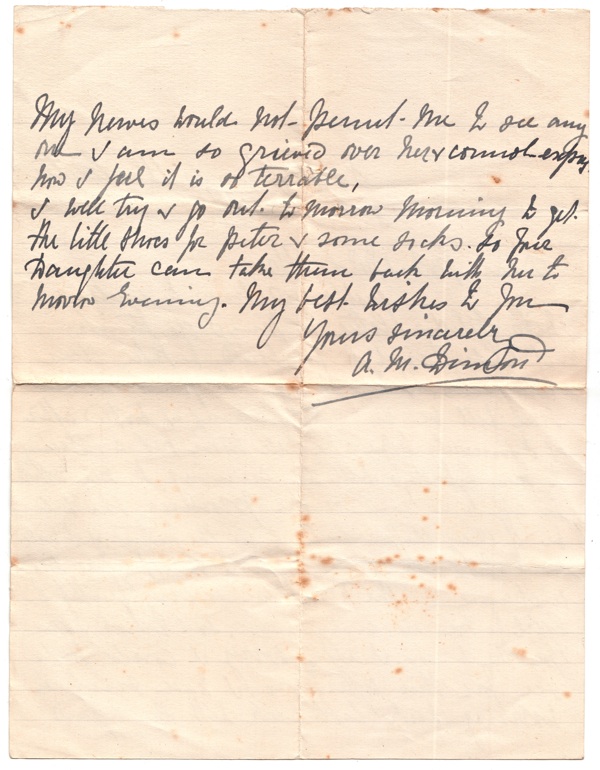 My Nerves would not permit me to see any
one I am so grieved over her & cannot expres
how I feel it is so terrable,
I will try & go out to morrow morning to get
the little shoes for Peter & some socks. So your
Daughter can take them back with her to
morrow Evening. My best Wishes to you
Yours sincerely
A. M.